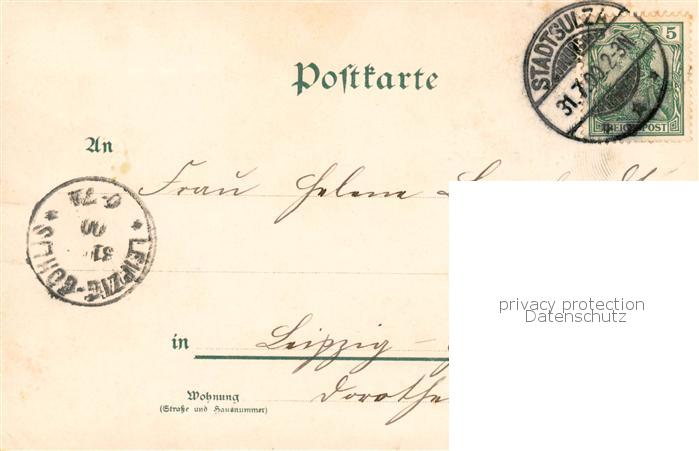 STADTSULZA
31.7.00.2-3N
5
REICHSPOST
Postkarte
An
Frau Helene
LEIPZIG-GOHLIS
31
00
in Leipzig -
Wohnung
(Straße und Hausnummer)
Dorothe
privacy protection
Datenschutz